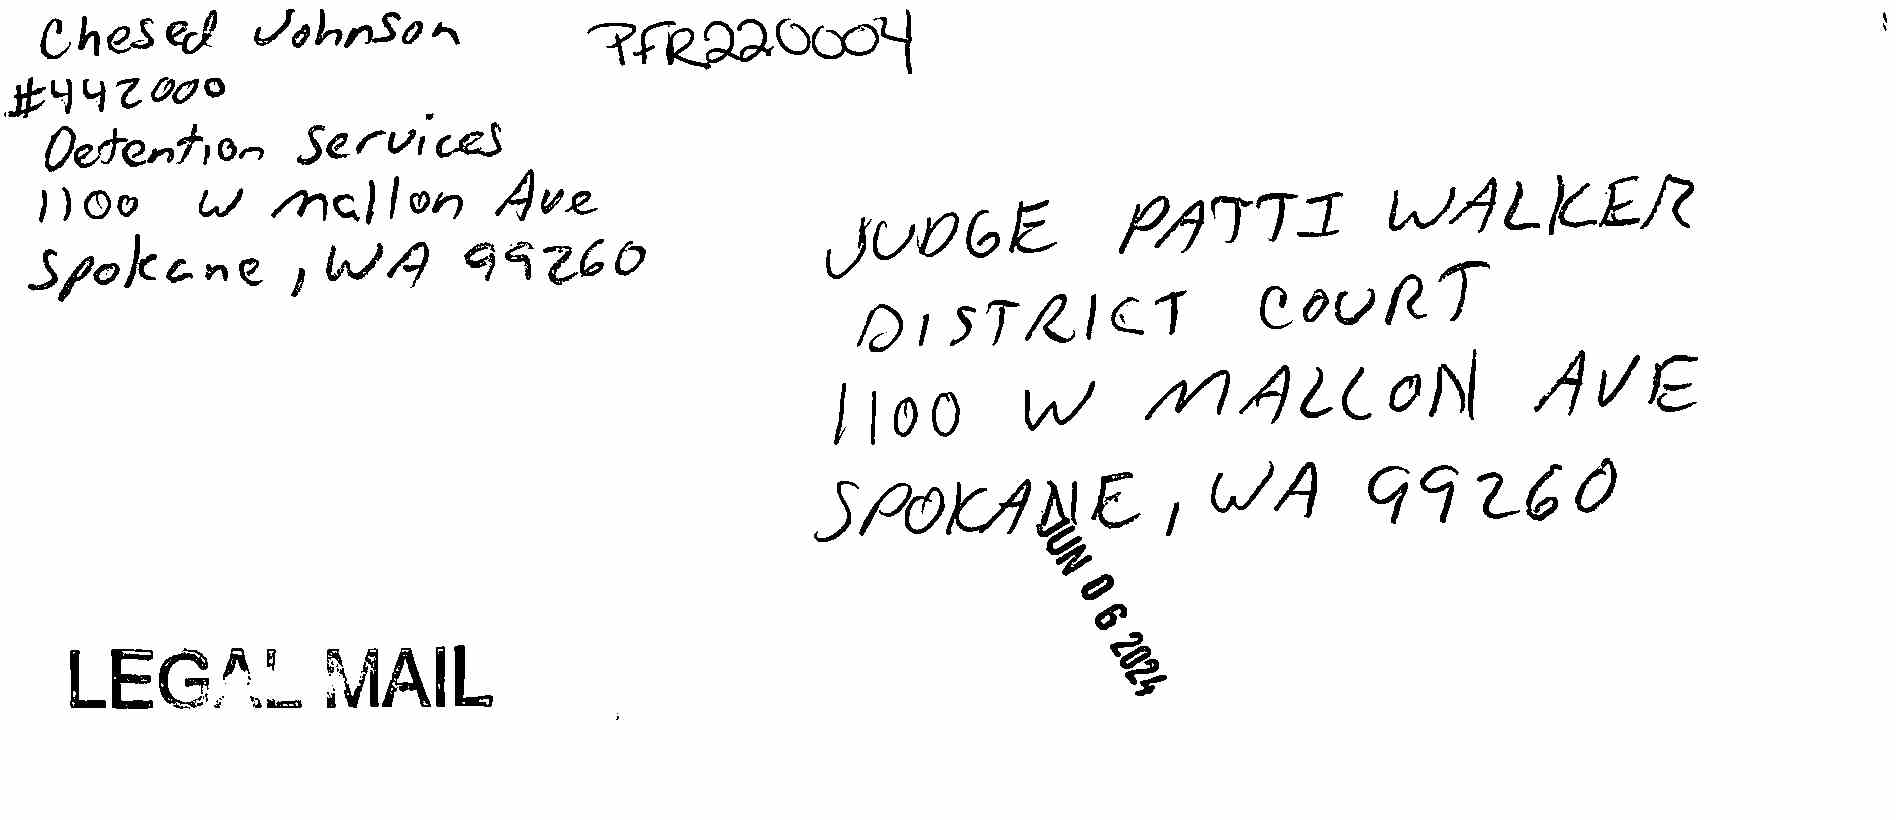 Chesed Johnson
PFR220004
#442000
Detention Services
1100 W Mallon Ave
Spokane, WA 99260
JUDGE PATTI WALKER
DISTRICT COURT
1100 W MALLON AVE
SPOKANE, WA 99260
JUN 06 2024
LEGAL MAIL